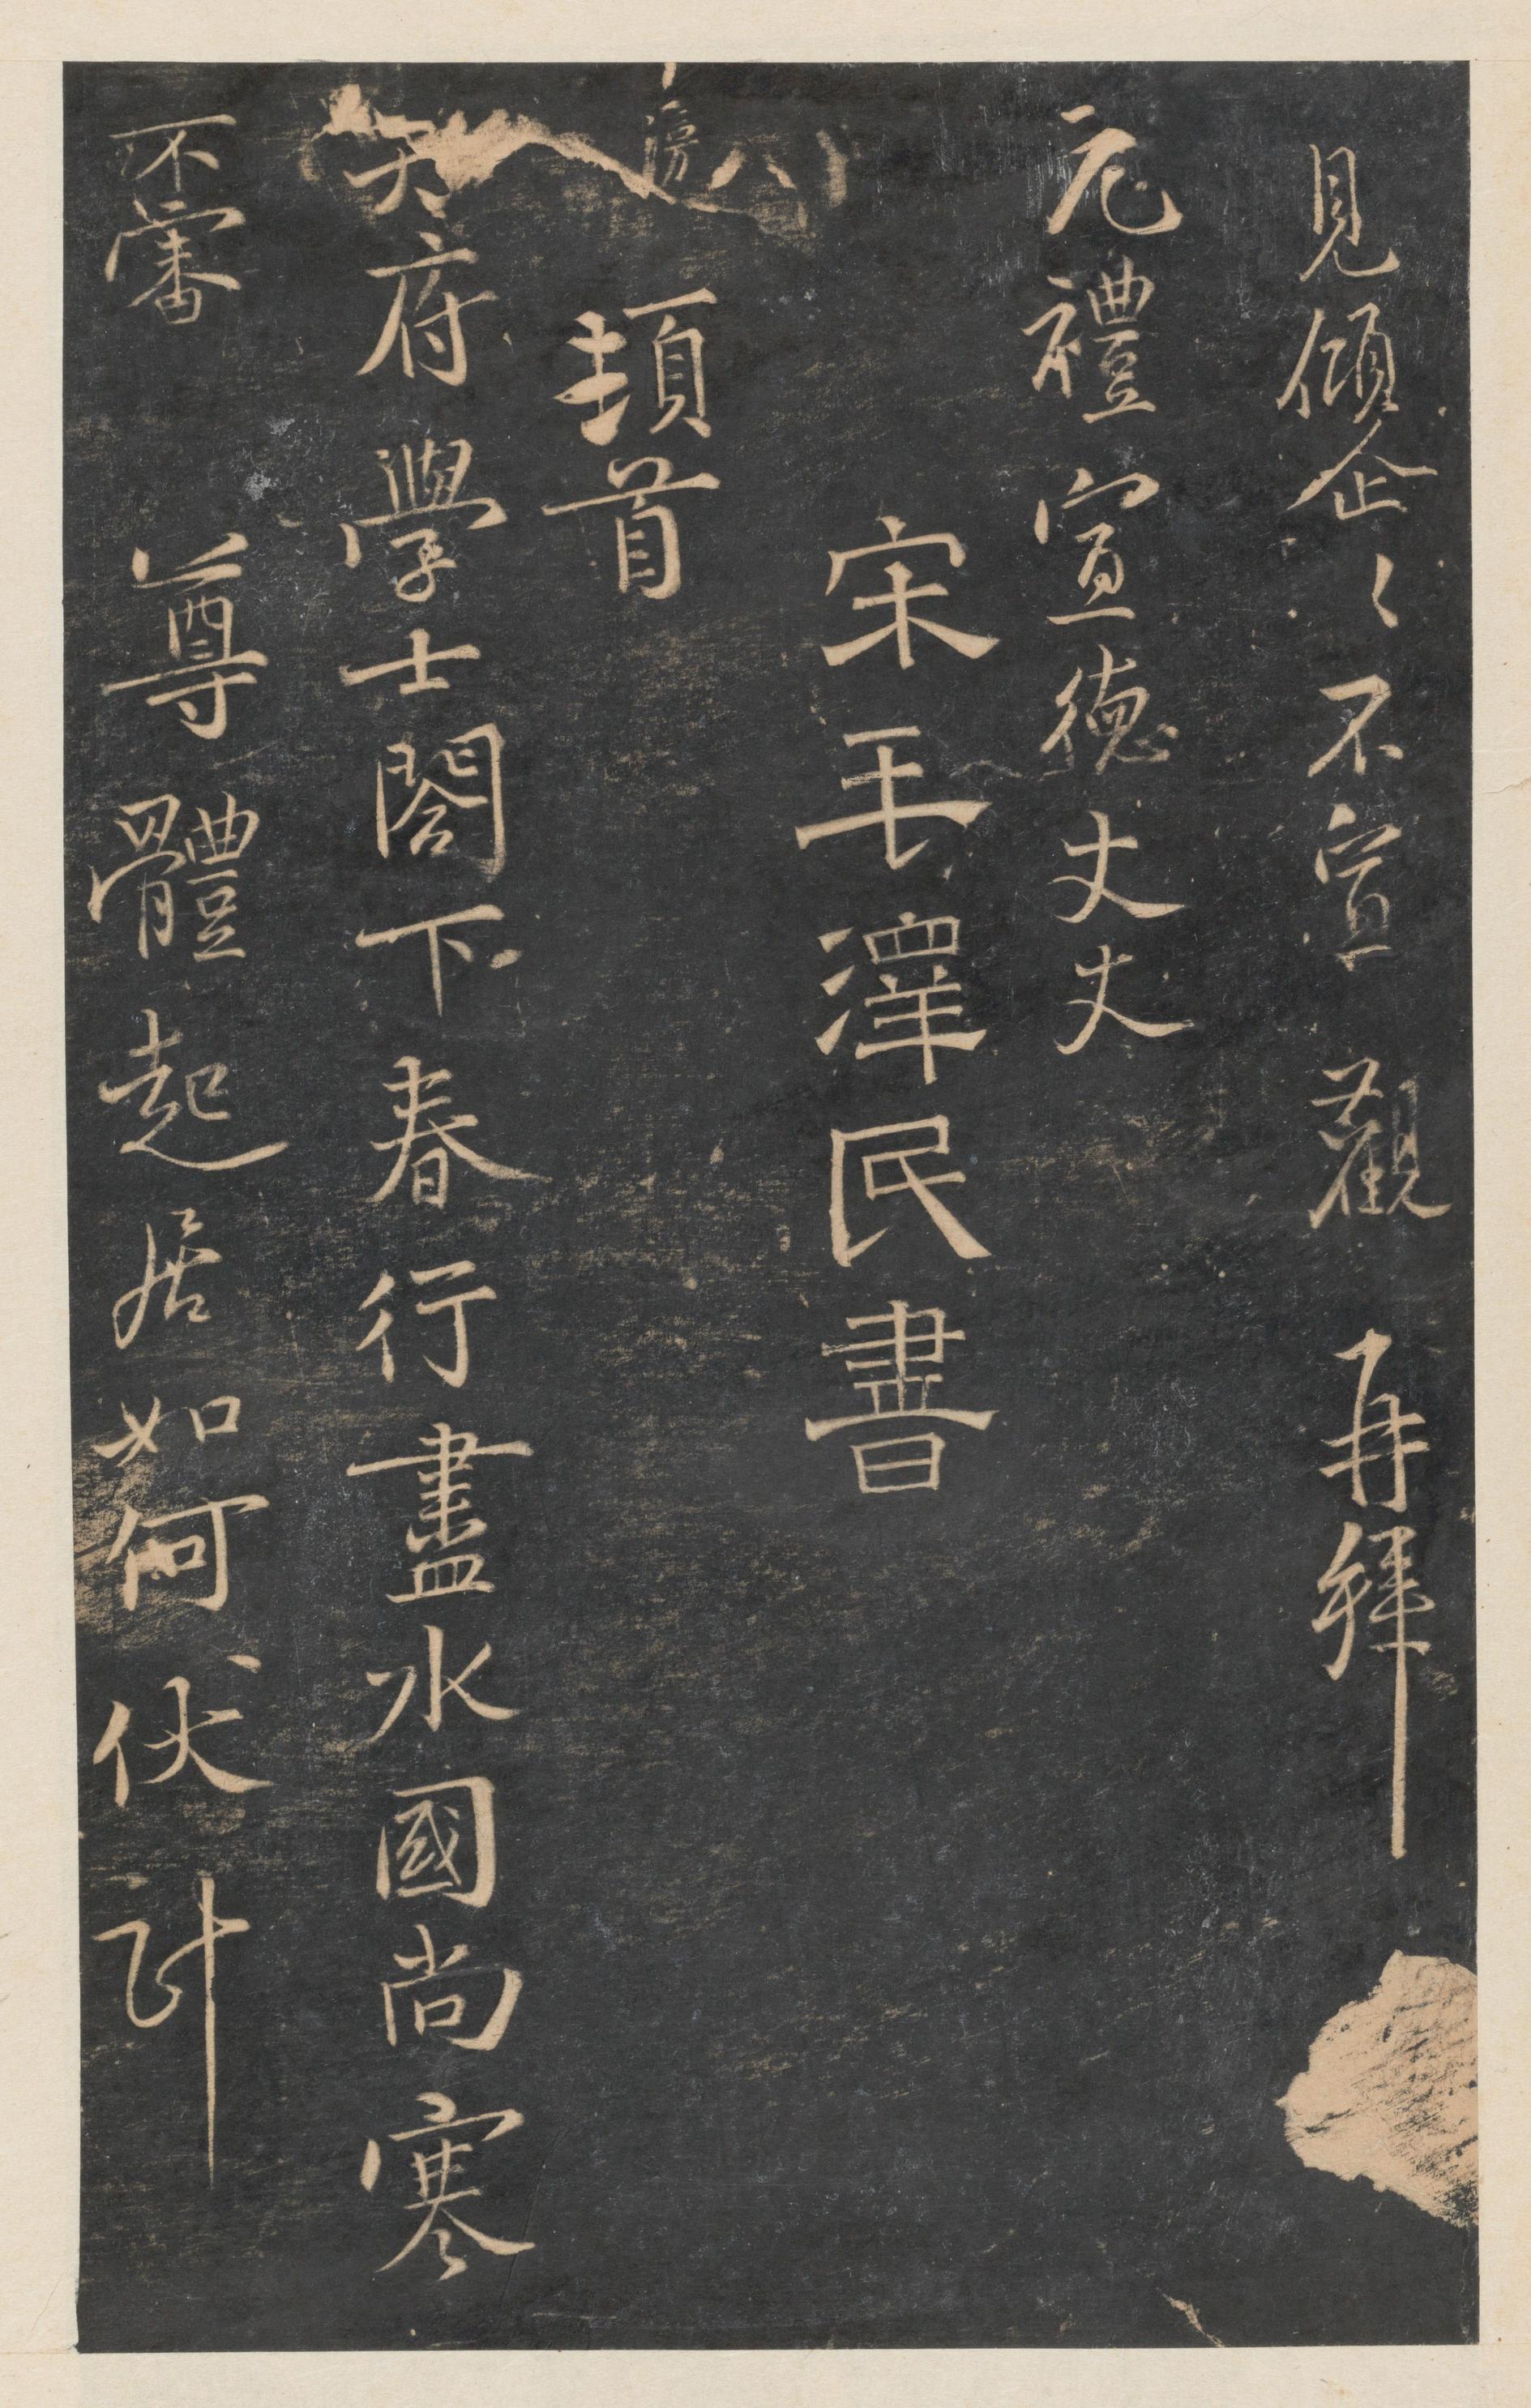 見傾企〻不宣觀再拜
元禮宣德丈丈
宋毛澤民書
滂
頓首
大府學士閤下春行盡水國尚寒
不審尊體起居如何伏計